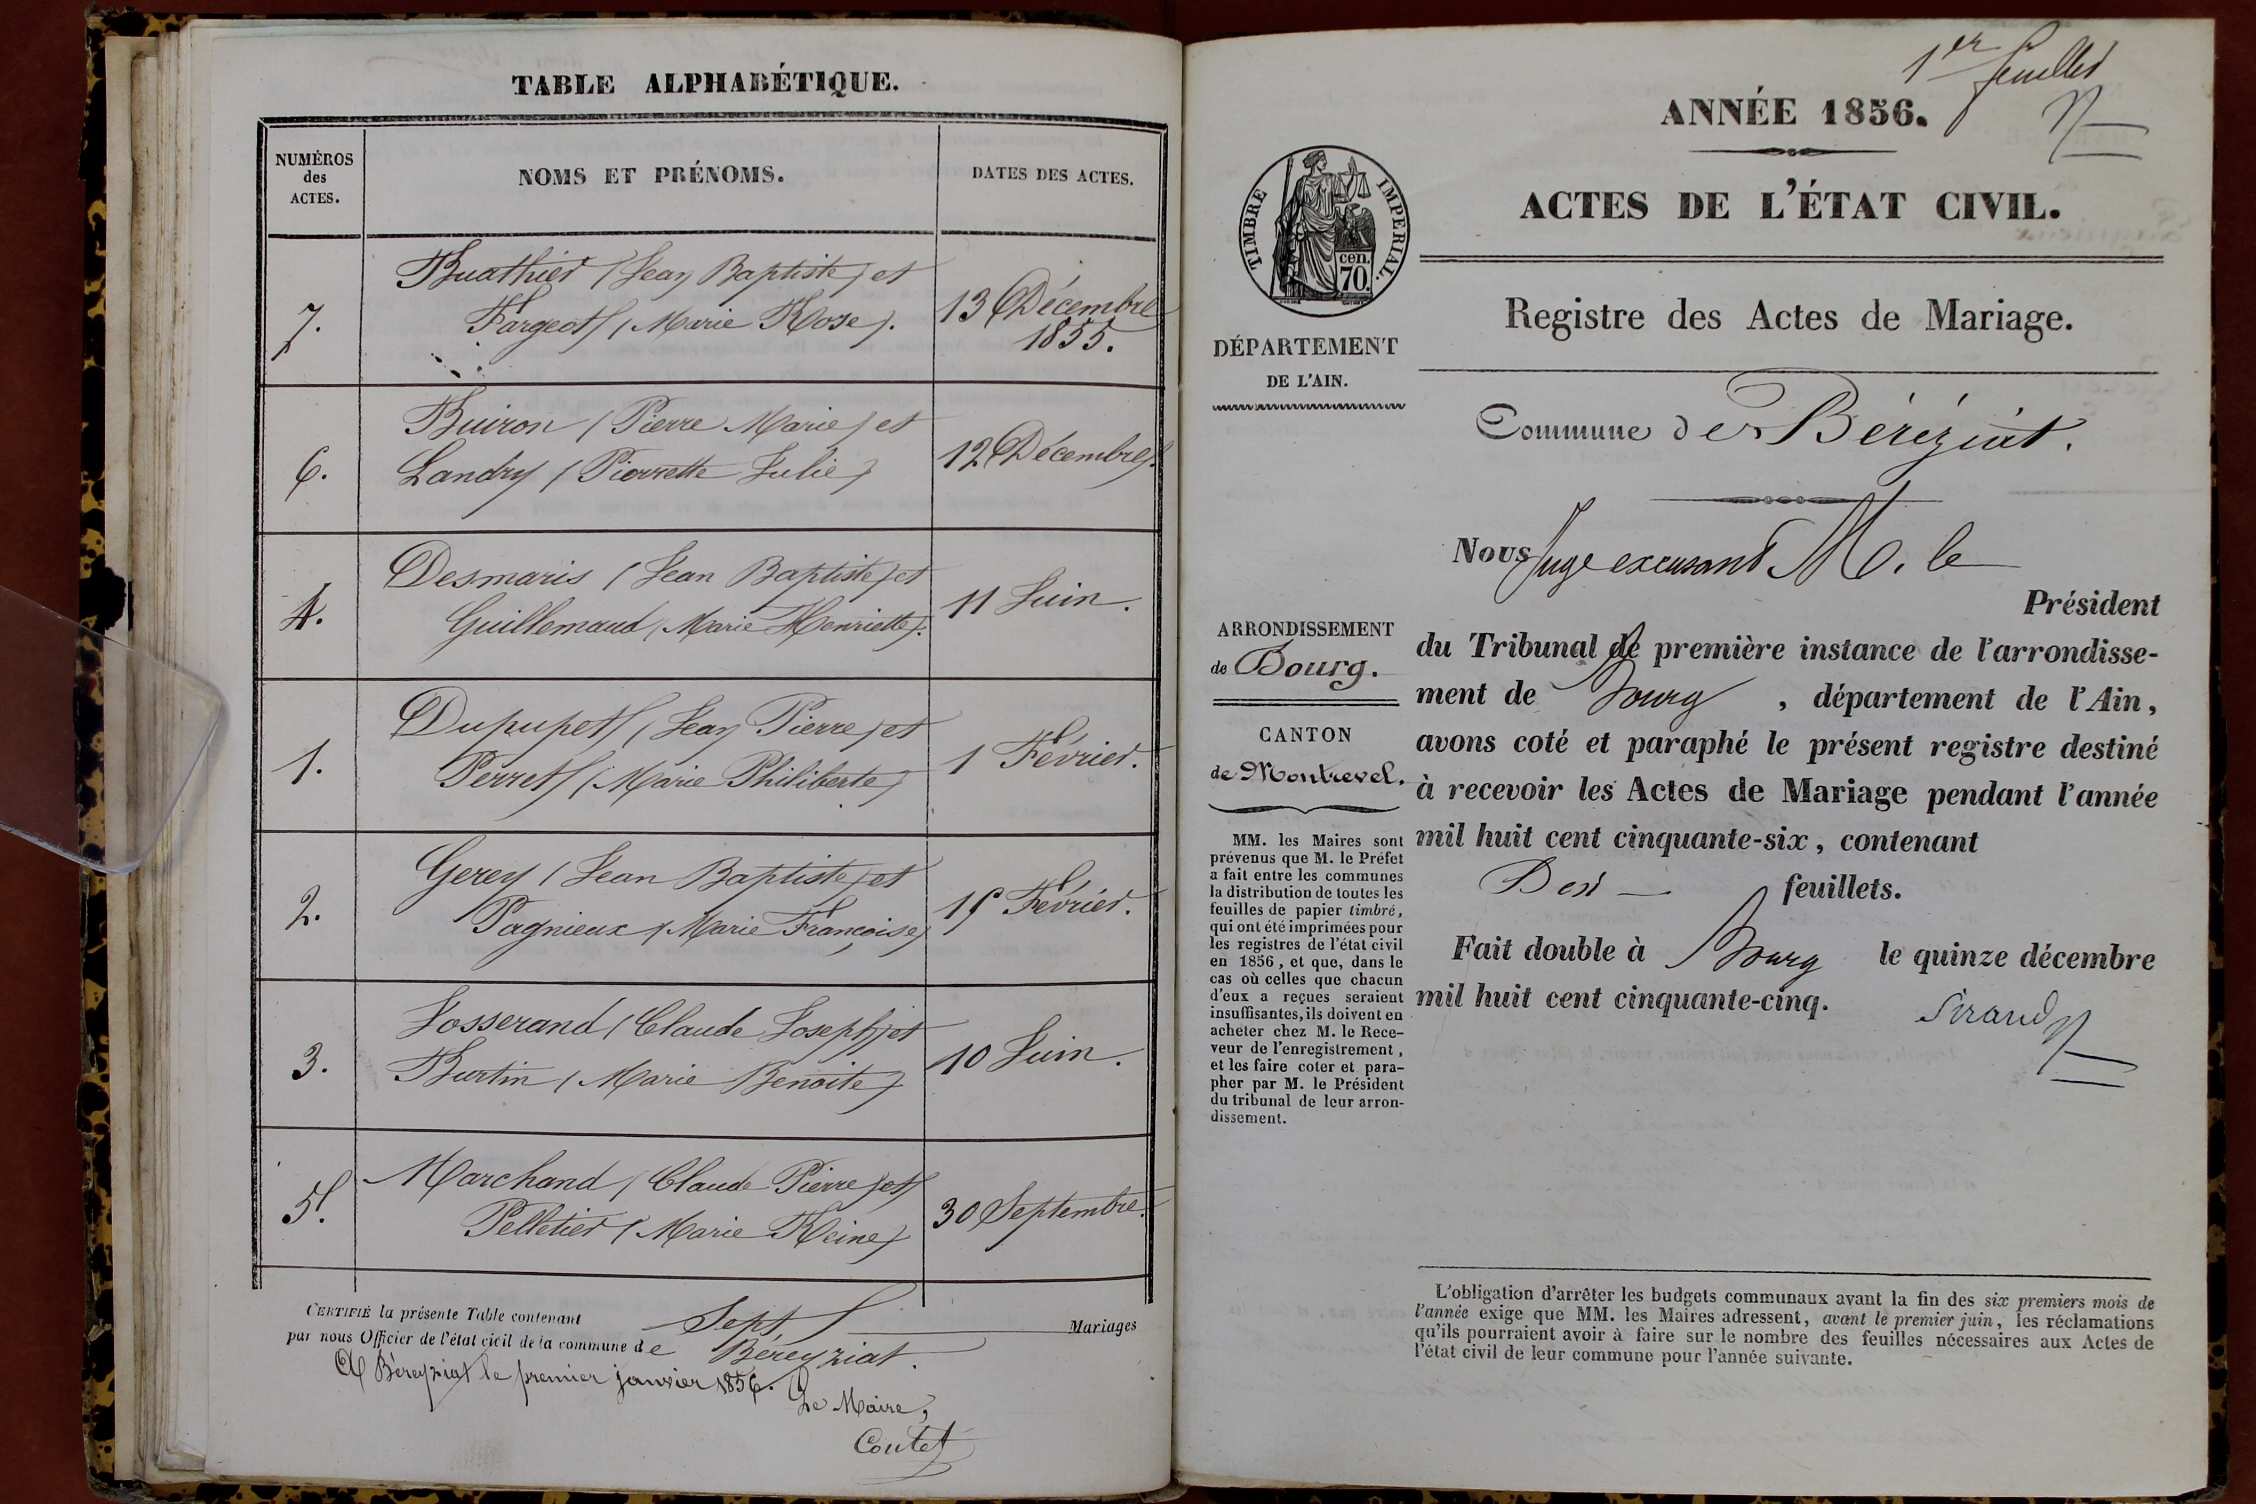 TABLE ALPHABÉTIQUE.
NUMÉROS
des
ACTES.
NOMS ET PRÉNOMS.
DATES DES ACTES.
7.
Buathier (Jean Baptiste) et
Fargeot (Marie Rose).
13 Décembre
1855.
6.
Buiron (Pierre Marie) et
Landry (Pierrette Julie)
12 Décembre.
4.
Desmaris (Jean Baptiste) et
Guillemaud (Marie Henriette).
11 Juin.
1.
Dupupet (Jean Pierre) et
Perret (Marie Philiberte)
1 Février.
2.
Gerey (Jean Baptiste) et
Pagnieux (Marie Françoise)
15 Février.
3.
Josserand (Claude Joseph) et
Burtin (Marie Benoite)
10 Juin.
5.
Marchand (Claude Pierre) et
Pelletier (Marie Reine)
30 Septembre.
CERTIFIÉ la présente Table contenant Sept Mariages
par nous Officier de l'état civil de la commune de Béreyziat.
A Béreyziat le premier janvier 1856.
Le Maire,
Coutet
1er feuillet
ANNÉE 1856.
TIMBRE IMPERIAL.
cen.
70.
ACTES DE L'ÉTAT CIVIL.
Registre des Actes de Mariage.
DÉPARTEMENT
DE L'AIN.
Commune de Béréziat.
Nous Juge excusant M. le
Président
ARRONDISSEMENT
de Bourg.
CANTON
de Montrevel.
du Tribunal de première instance de l'arrondisse-
ment de Bourg , département de l'Ain,
avons coté et paraphé le présent registre destiné
à recevoir les Actes de Mariage pendant l'année
mil huit cent cinquante-six, contenant
Dix feuillets.
Fait double à Bourg le quinze décembre
mil huit cent cinquante-cinq.
Sirand
MM. les Maires sont
prévenus que M. le Préfet
a fait entre les communes
la distribution de toutes les
feuilles de papier timbré,
qui ont été imprimées pour
les registres de l'état civil
en 1856, et que, dans le
cas où celles que chacun
d'eux a reçues seraient
insuffisantes, ils doivent en
acheter chez M. le Rece-
veur de l'enregistrement,
et les faire coter et para-
pher par M. le Président
du tribunal de leur arron-
dissement.
L'obligation d'arrêter les budgets communaux avant la fin des six premiers mois de
l'année exige que MM. les Maires adressent, avant le premier juin, les réclamations
qu'ils pourraient avoir à faire sur le nombre des feuilles nécessaires aux Actes de
l'état civil de leur commune pour l'année suivante.